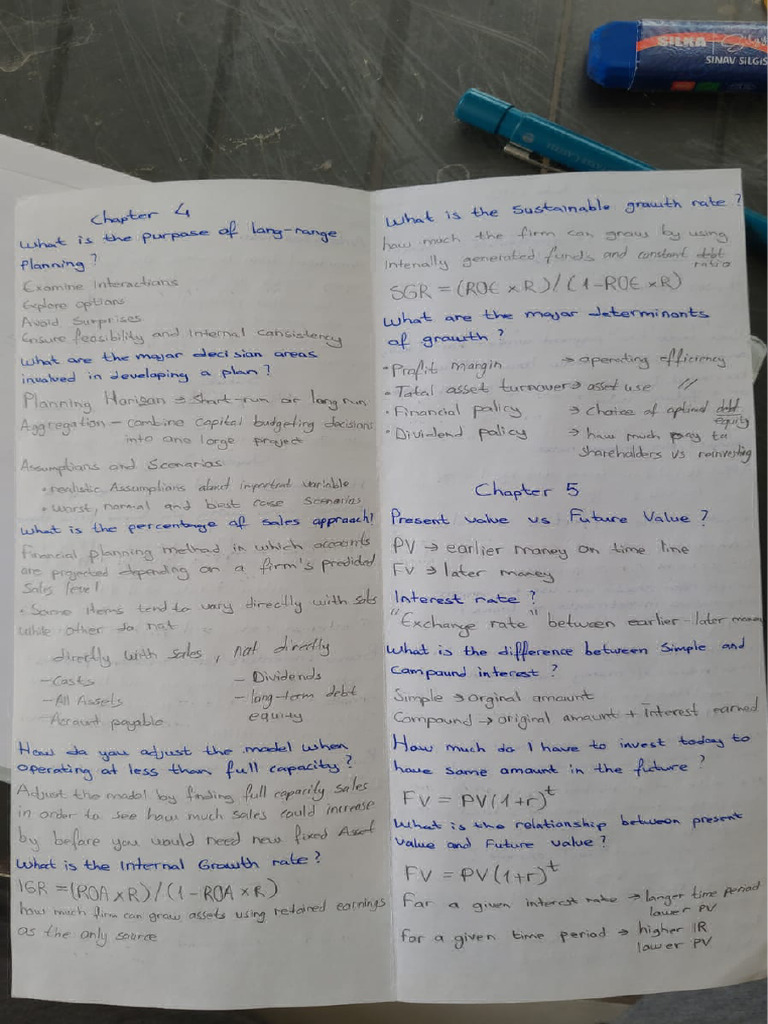 SILKA
SINAV SİLGİS
Chapter 4
What is the purpose of long-range
planning?
Examine Interactions
Explore options
Avoid Surprises
Ensure feasibility and Internal consistency
What are the major decision areas
involved in developing a plan?
Planning Horison → Short-run or long run
Aggregation - combine Capital budgeting decisions
into one large project
Assumptions and Scenarios
• realistic Assumptions about important variable
• worst, normal and best case Scenarios
What is the percentage of sales approach?
Financial planning method in which accounts
are projected depending on a firm's predicted
Sales level
• Some items tend to vary directly with sales
while other do not
directly with sales, not directly
-Costs
-All Assets
-Account payable
- Dividends
- long-term debt
equity
How do you adjust the model when
operating at less than full capacity?
Adjust the model by finding full capacity sales
in order to see how much sales could increase
by before you would need new fixed Asset
What is the Internal Growth rate?
IGR = (ROA x R) / (1 - ROA x R)
how much firm can grow assets using retained earnings
as the only source
What is the Sustainable growth rate?
how much the firm can grow by using
Internally generated funds and constant debt
ratio
SGR = (ROE x R) / (1 - ROE x R)
What are the major determinants
of growth?
• Profit margin → operating efficiency
• Total asset turnover → asset use "
• Financial policy → choice of optimal debt
equity
• Dividend policy → how much pay to
shareholders vs reinvesting
Chapter 5
Present value vs Future Value?
PV → earlier money on time line
FV → later money
Interest rate?
"Exchange rate" between earlier-later money
What is the difference between Simple and
Compound interest?
Simple → orginal amount
Compound → original amount + Interest earned
How much do I have to invest today to
have some amount in the future?
FV = PV(1+r)^t
What is the relationship between present
Value and Future value?
FV = PV(1+r)^t
For a given interest rate → longer time period
lower PV
for a given time period → higher IR
lower PV